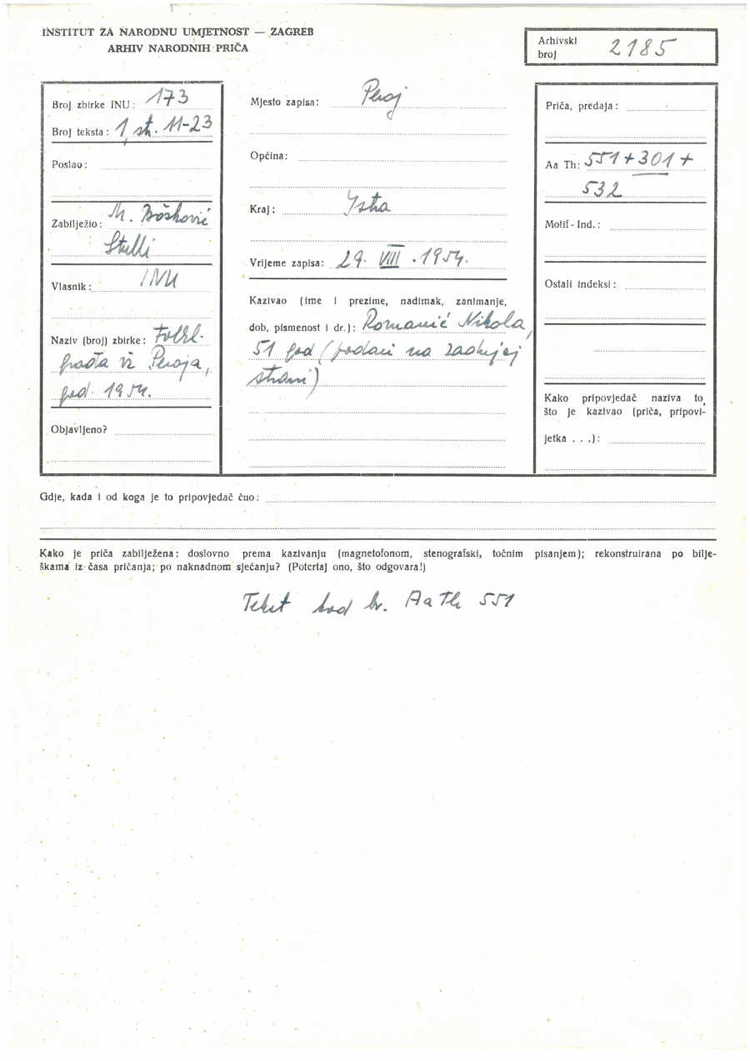 INSTITUT ZA NARODNU UMJETNOST — ZAGREB
ARHIV NARODNIH PRIČA
Arhivski broj 2185
Broj zbirke INU: 173
Broj teksta: 1, str. 11-23
Poslao:
Zabilježio: M. Bošković
Stulli
Vlasnik: INU
Naziv (broj) zbirke: Folkl.
građa iz Peroja,
god. 1954.
Objavljeno?
Mjesto zapisa: Peroj
Općina:
Kraj: Istra
Vrijeme zapisa: 29. VIII. 1954.
Kazivao (ime i prezime, nadimak, zanimanje,
dob, pismenost i dr.): Romanić Nikola,
51 god (podaci na zadnjoj
strani)
Priča, predaja:
Aa Th: 551+301+
532
Motif-Ind.:
Ostali indeksi:
Kako pripovjedač naziva to,
što je kazivao (priča, pripovi-
jetka . . .):
Gdje, kada i od koga je to pripovjedač čuo:
Kako je priča zabilježena: doslovno prema kazivanju (magnetofonom, stenografski, točnim pisanjem); rekonstruirana po bilje-
škama iz časa pričanja; po naknadnom sjećanju? (Potcrtaj ono, što odgovara!)
Tekst kod br. Aa Th 551